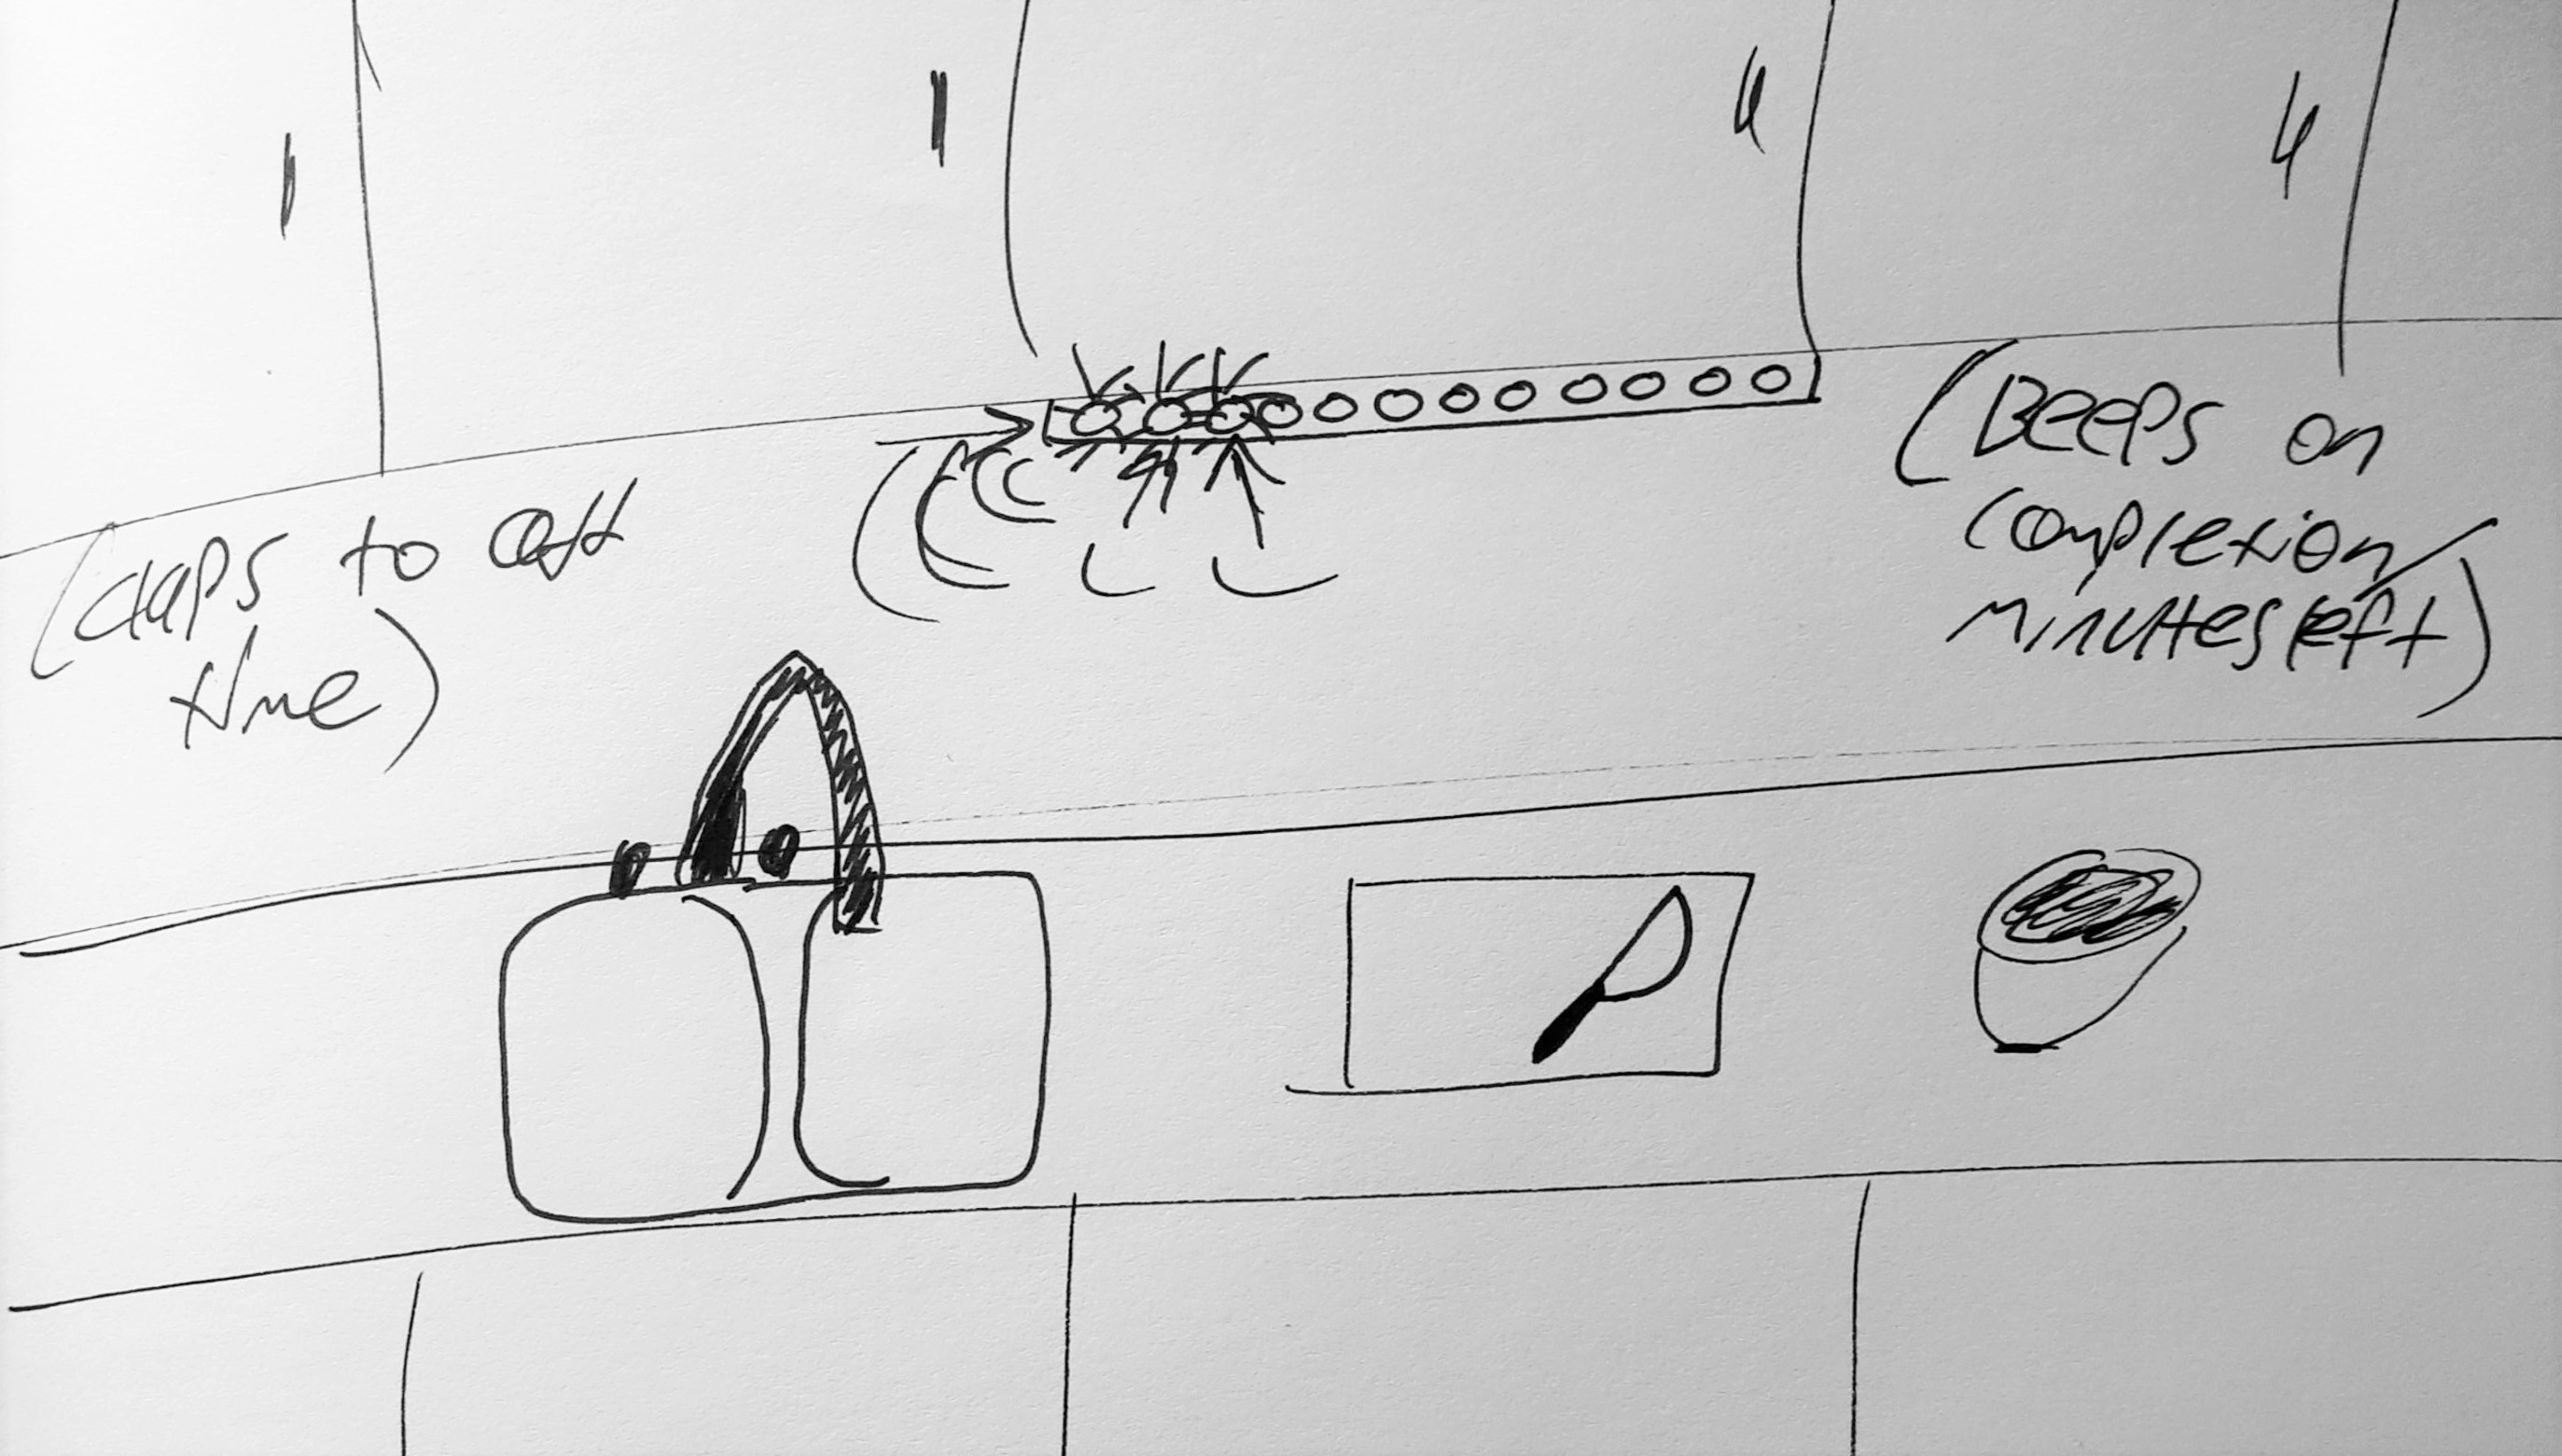 (claps to add
time)
(Beeps on
completion/
minutes left)